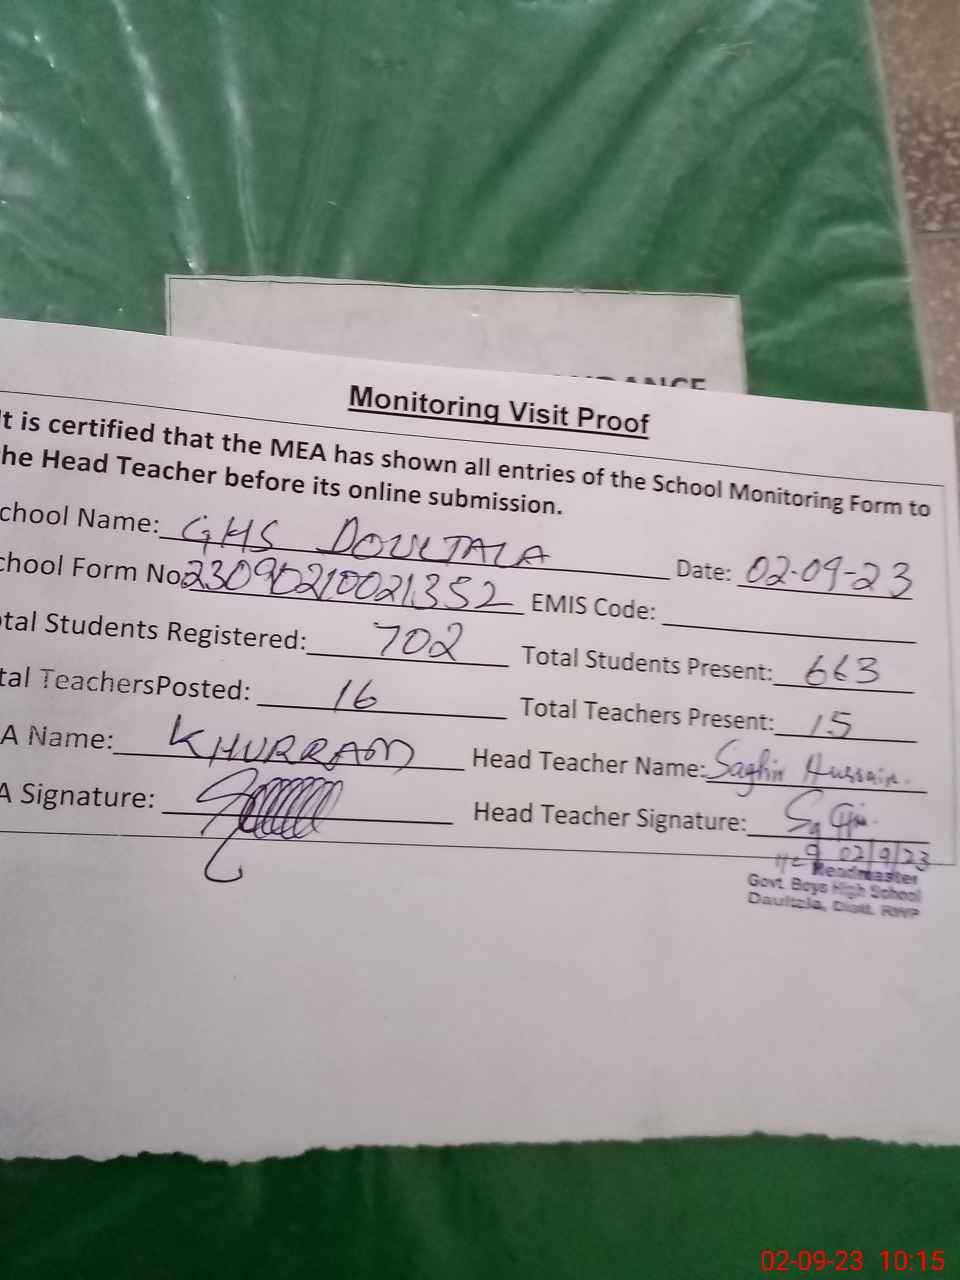 ANCE
Monitoring Visit Proof
t is certified that the MEA has shown all entries of the School Monitoring Form to
he Head Teacher before its online submission.
chool Name: GHS DOULTALA Date: 02-09-23
chool Form No 23090210021352 EMIS Code:
tal Students Registered: 702 Total Students Present: 663
tal TeachersPosted: 16 Total Teachers Present: 15
A Name: KHURRAM Head Teacher Name: Saghir Hussain.
A Signature: Head Teacher Signature:
02/9/23
Headmaster
Govt. Boys High School
Daultala, Distt. RWP
02-09-23 10:15